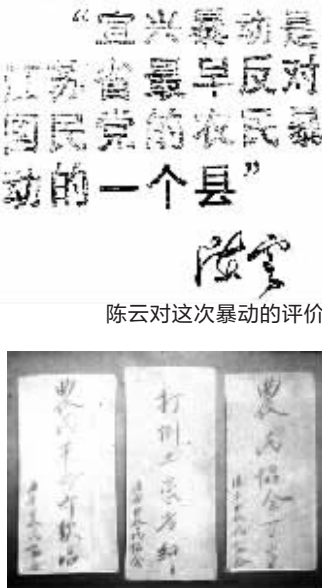 “宜兴暴动是
江苏省最早反对
国民党的农民暴
动的一个县”
陈云
陈云对这次暴动的评价
農民
打倒土豪劣紳
農民協会万歲